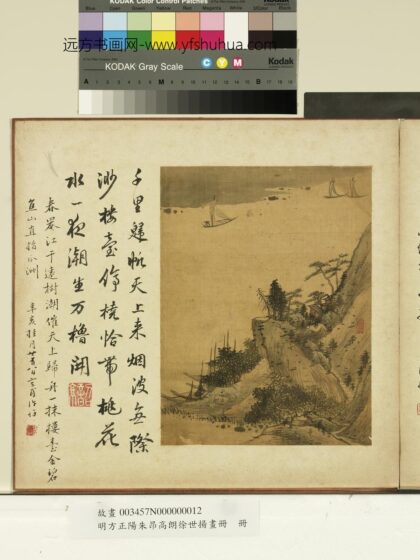 KODAK Color Control Patches
Cyan Green Yellow Red Magenta White 3/Color Black
远方书画网-www.yfshuhua.com
KODAK Gray Scale
C Y M
Kodak
A 1 2 3 4 5 6 M 8 9 10 11 12 13 14 15 B 17 18 19
千里歸帆天上来烟波無際
渺樓臺停橈恰帶桃花
水一夜潮生万櫓開
江干遠樹潮催天上歸舟一抹樓臺金碧
焦山直指瓜洲 辛亥桂月
故畫 003457N000000012
明方正陽朱昂高朗徐世揚畫冊 冊